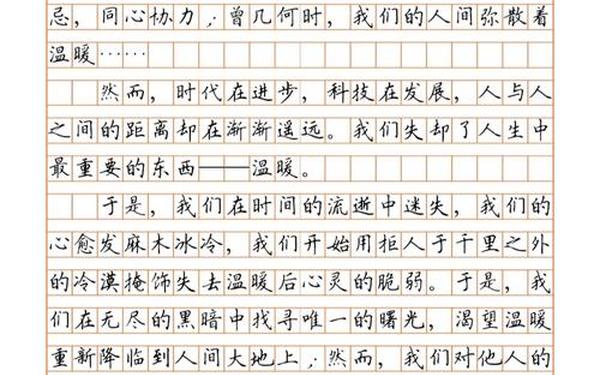 忌，同心协力；曾几何时，我们的人间弥散着
温暖……
然而，时代在进步，科技在发展，人与人
之间的距离却在渐渐遥远。我们失却了人生中
最重要的东西——温暖。
于是，我们在时间的流逝中迷失，我们的
心愈发麻木冰冷，我们开始用拒人于千里之外
的冷漠掩饰失去温暖后心灵的脆弱。于是，我
们在无尽的黑暗中找寻唯一的曙光，渴望温暖
重新降临到人间大地上；然而，我们对他人的